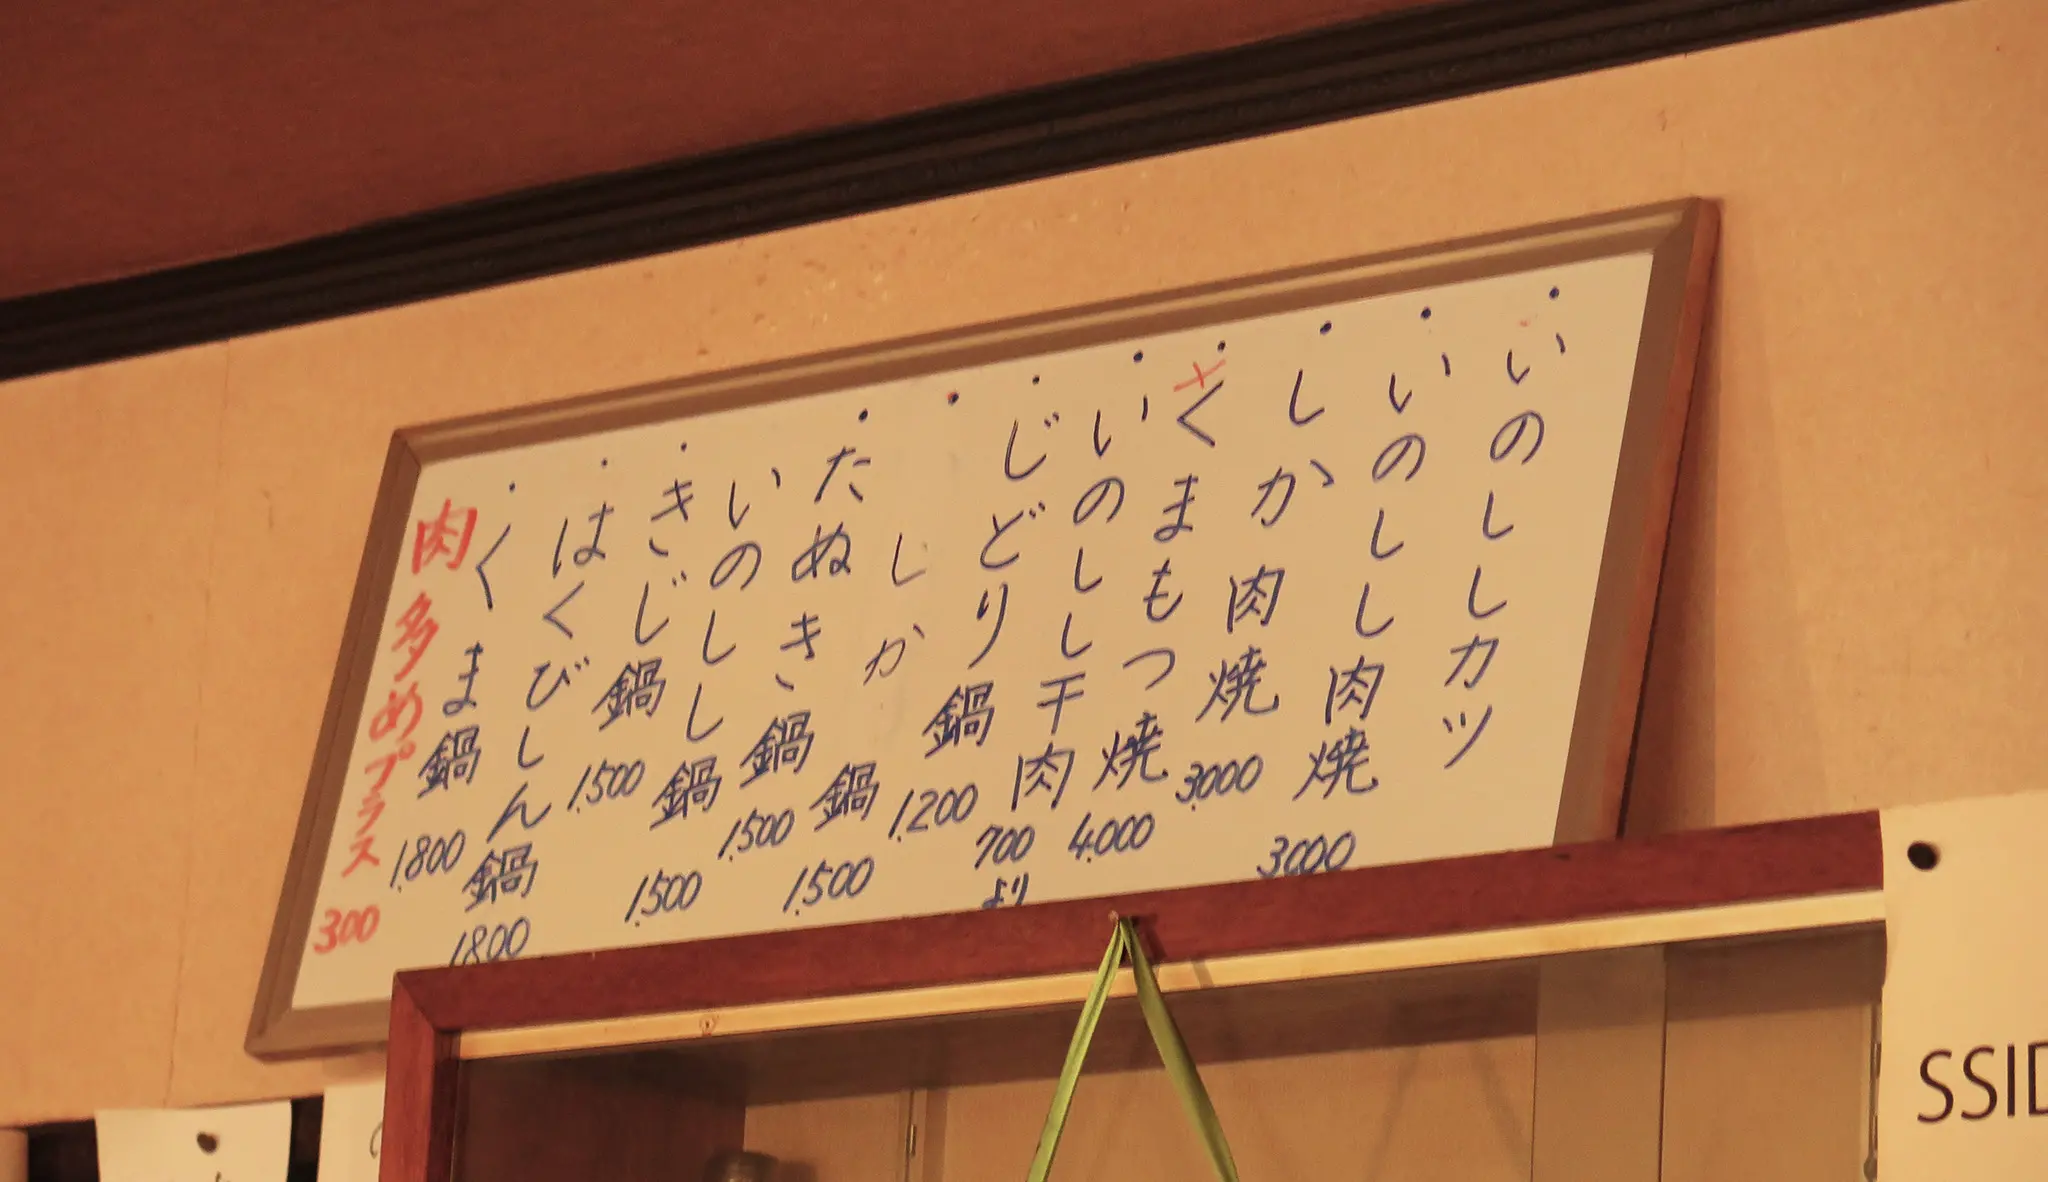 ・いのししカツ
・いのしし肉焼 3000
・しか肉焼 3.000
・×くまもつ焼 4.000
・いのしし干肉 700より
・じどり鍋 1.200
・しか鍋 1.500
・たぬき鍋 1.500
いのしし鍋 1.500
・きじ鍋 1.500
・はくびしん鍋 1.800
・くま鍋 1.800
肉多めプラス 300
SSID